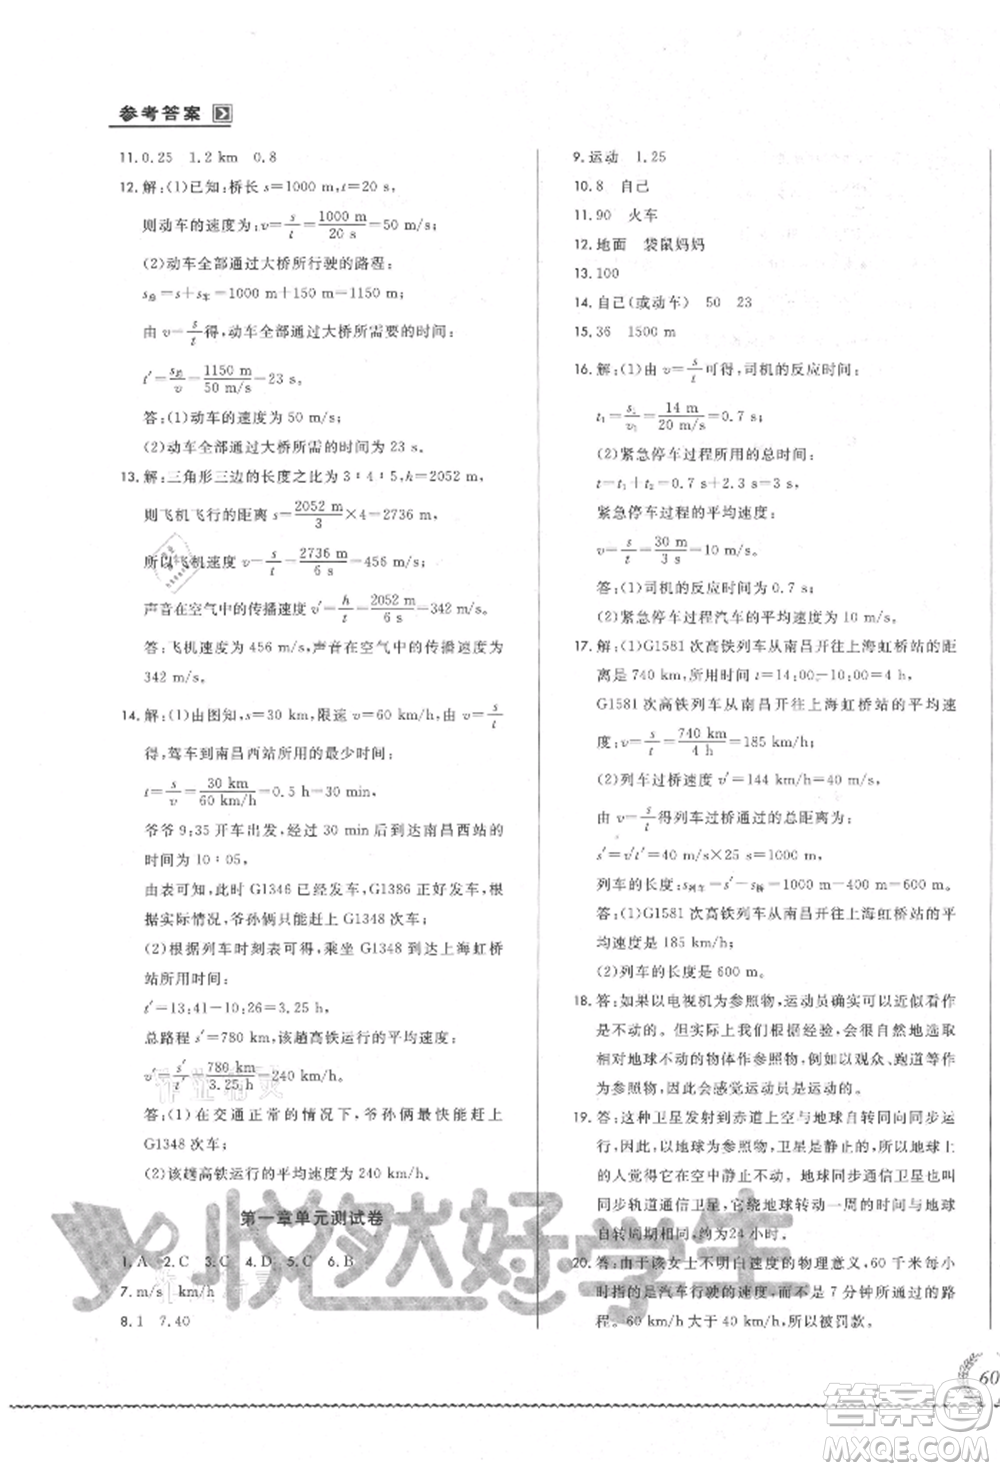 参考答案
11. 0.25 1.2 km 0.8
12. 解:(1)已知:桥长 s=1000 m,t=20 s,
则动车的速度为:v=s/t=1000 m/20 s=50 m/s;
(2)动车全部通过大桥所行驶的路程:
s总=s+s车=1000 m+150 m=1150 m,
由 v=s/t得,动车全部通过大桥所需要的时间:
t′=s总/v=1150 m/50 m/s=23 s。
答:(1)动车的速度为 50 m/s;
(2)动车全部通过大桥所需的时间为 23 s。
13. 解:三角形三边的长度之比为 3∶4∶5,h=2052 m,
则飞机飞行的距离 s=2052 m/3×4=2736 m,
所以飞机速度 v=s/t=2736 m/6 s=456 m/s,
声音在空气中的传播速度 v′=h/t=2052 m/6 s=342 m/s。
答:飞机速度为 456 m/s,声音在空气中的传播速度为
342 m/s。
14. 解:(1)由图知,s=30 km,限速 v=60 km/h,由 v=s/t
得,驾车到南昌西站所用的最少时间:
t=s/v=30 km/60 km/h=0.5 h=30 min,
爷爷 9:35 开车出发,经过 30 min 后到达南昌西站的
时间为 10∶05。
由表可知,此时 G1346 已经发车,G1386 正好发车,根
据实际情况,爷孙俩只能赶上 G1348 次车;
(2)根据列车时刻表可得,乘坐 G1348 到达上海虹桥
站所用时间:
t′=13:41-10:26=3.25 h,
总路程 s′=780 km,该趟高铁运行的平均速度:
v′=s′/t′=780 km/3.25 h=240 km/h。
答:(1)在交通正常的情况下,爷孙俩最快能赶上
G1348 次车;
(2)该趟高铁运行的平均速度为 240 km/h。
第一章单元测试卷
1. A 2. C 3. C 4. D 5. C 6. B
7. m/s km/h
8. 1 7.40
9. 运动 1.25
10. 8 自己
11. 90 火车
12. 地面 袋鼠妈妈
13. 100
14. 自己(或动车) 50 23
15. 36 1500 m
16. 解:(1)由 v=s/t可得,司机的反应时间:
t₁=s₁/v₁=14 m/20 m/s=0.7 s,
(2)紧急停车过程所用的总时间:
t=t₁+t₂=0.7 s+2.3 s=3 s,
紧急停车过程的平均速度:
v=s/t=30 m/3 s=10 m/s。
答:(1)司机的反应时间为 0.7 s;
(2)紧急停车过程汽车的平均速度为 10 m/s。
17. 解:(1)G1581 次高铁列车从南昌开往上海虹桥站的距
离是 740 km,时间 t=14:00-10:00=4 h,
G1581 次高铁列车从南昌开往上海虹桥站的平均速
度:v=s/t=740 km/4 h=185 km/h;
(2)列车过桥速度 v′=144 km/h=40 m/s,
由 v=s/t得列车过桥通过的总距离:
s′=v′t′=40 m/s×25 s=1000 m,
列车的长度:s列车=s′-s桥=1000 m-400 m=600 m。
答:(1)G1581 次高铁列车从南昌开往上海虹桥站的平
均速度是 185 km/h;
(2)列车的长度是 600 m。
18. 答:如果以电视机为参照物,运动员确实可以近似看作
是不动的。但实际上我们根据经验,会很自然地选取
相对地球不动的物体作参照物,例如以观众、跑道等作
为参照物,因此就会感觉运动员是运动的。
19. 答:这种卫星发射到赤道上空与地球自转同向同步运
行,因此,以地球为参照物,卫星是静止的,所以地球上
的人觉得它在空中静止不动。地球同步通信卫星也叫
同步轨道通信卫星,它绕地球转动一周的时间与地球
自转周期相同,大约为 24 小时。
20. 答:由于该女士不明白速度的物理意义,60 千米每小
时指的是汽车行驶的速度,而不是 7 分钟所行驶的路
程。60 km/h 大于 40 km/h,所以被罚款。
60
悦然好学生
答案圈
MXQE.COM